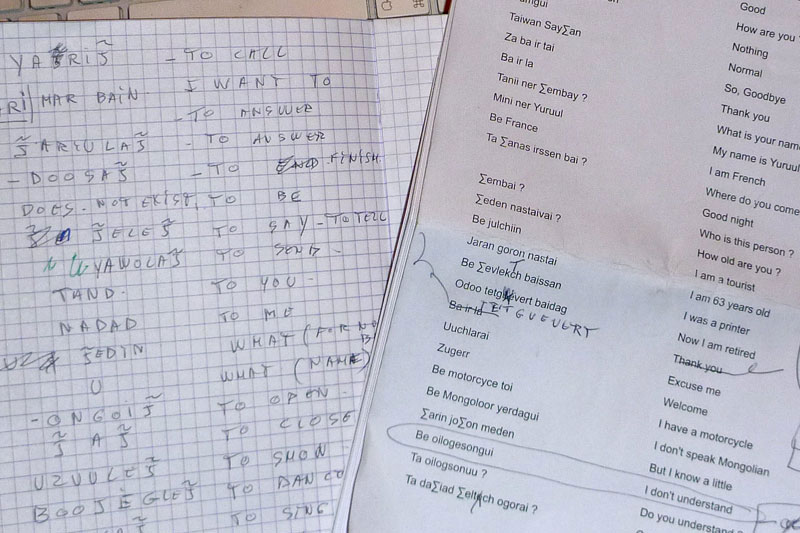 ⌘
YASRIS̃ - TO CALL
RI MAR BAIN I WANT TO
- TO ANSWER
S̃ARIULAS̃ - TO ANSWER
- DOOSAS̃ - TO FINISH
DOES NOT EXIST TO BE
S̃ELES̃ TO SAY - TO TELL
YAWOLAS̃ TO SEND
TAND TO YOU
NADAD TO ME
S̃EDIN WHAT (FOR
U WHAT (NAME)
- ONGOIS̃ TO OPEN
S̃AS̃ TO CLOSE
UZUULES̃ TO SHOW
BOOJEGLES̃ TO DANCE
TO SING
Good
Taiwan SayƩan How are you ?
Za ba ir tai Nothing
Ba ir la Normal
Tanii ner Ʃembay ? So, Goodbye
Mini ner Yuruul Thank you
Be France What is your name
Ta Ʃanas irssen bai ? My name is Yuruul
I am French
Where do you come
Ʃembai ? Good night
Ʃeden nastaivai ? Who is this person ?
Be julchiin How old are you ?
Jaran goron nastai I am a tourist
Be Ʃevlekch baissan I am 63 years old
Odoo tetgUvert baidag I was a printer
TETGUEUERT
Ba ir la Now I am retired
Uuchlarai Thank you
Zugerr Excuse me
Be motorcyce toi Welcome
Be Mongoloor yerdagui I have a motorcycle
Ʃarin joƩon meden I don't speak Mongolian
Be oilogesongui But I know a little
Ta oilogsonuu ? I don't understand
Ta daƩiad Ʃeltch ogorai ? Do you understand ?